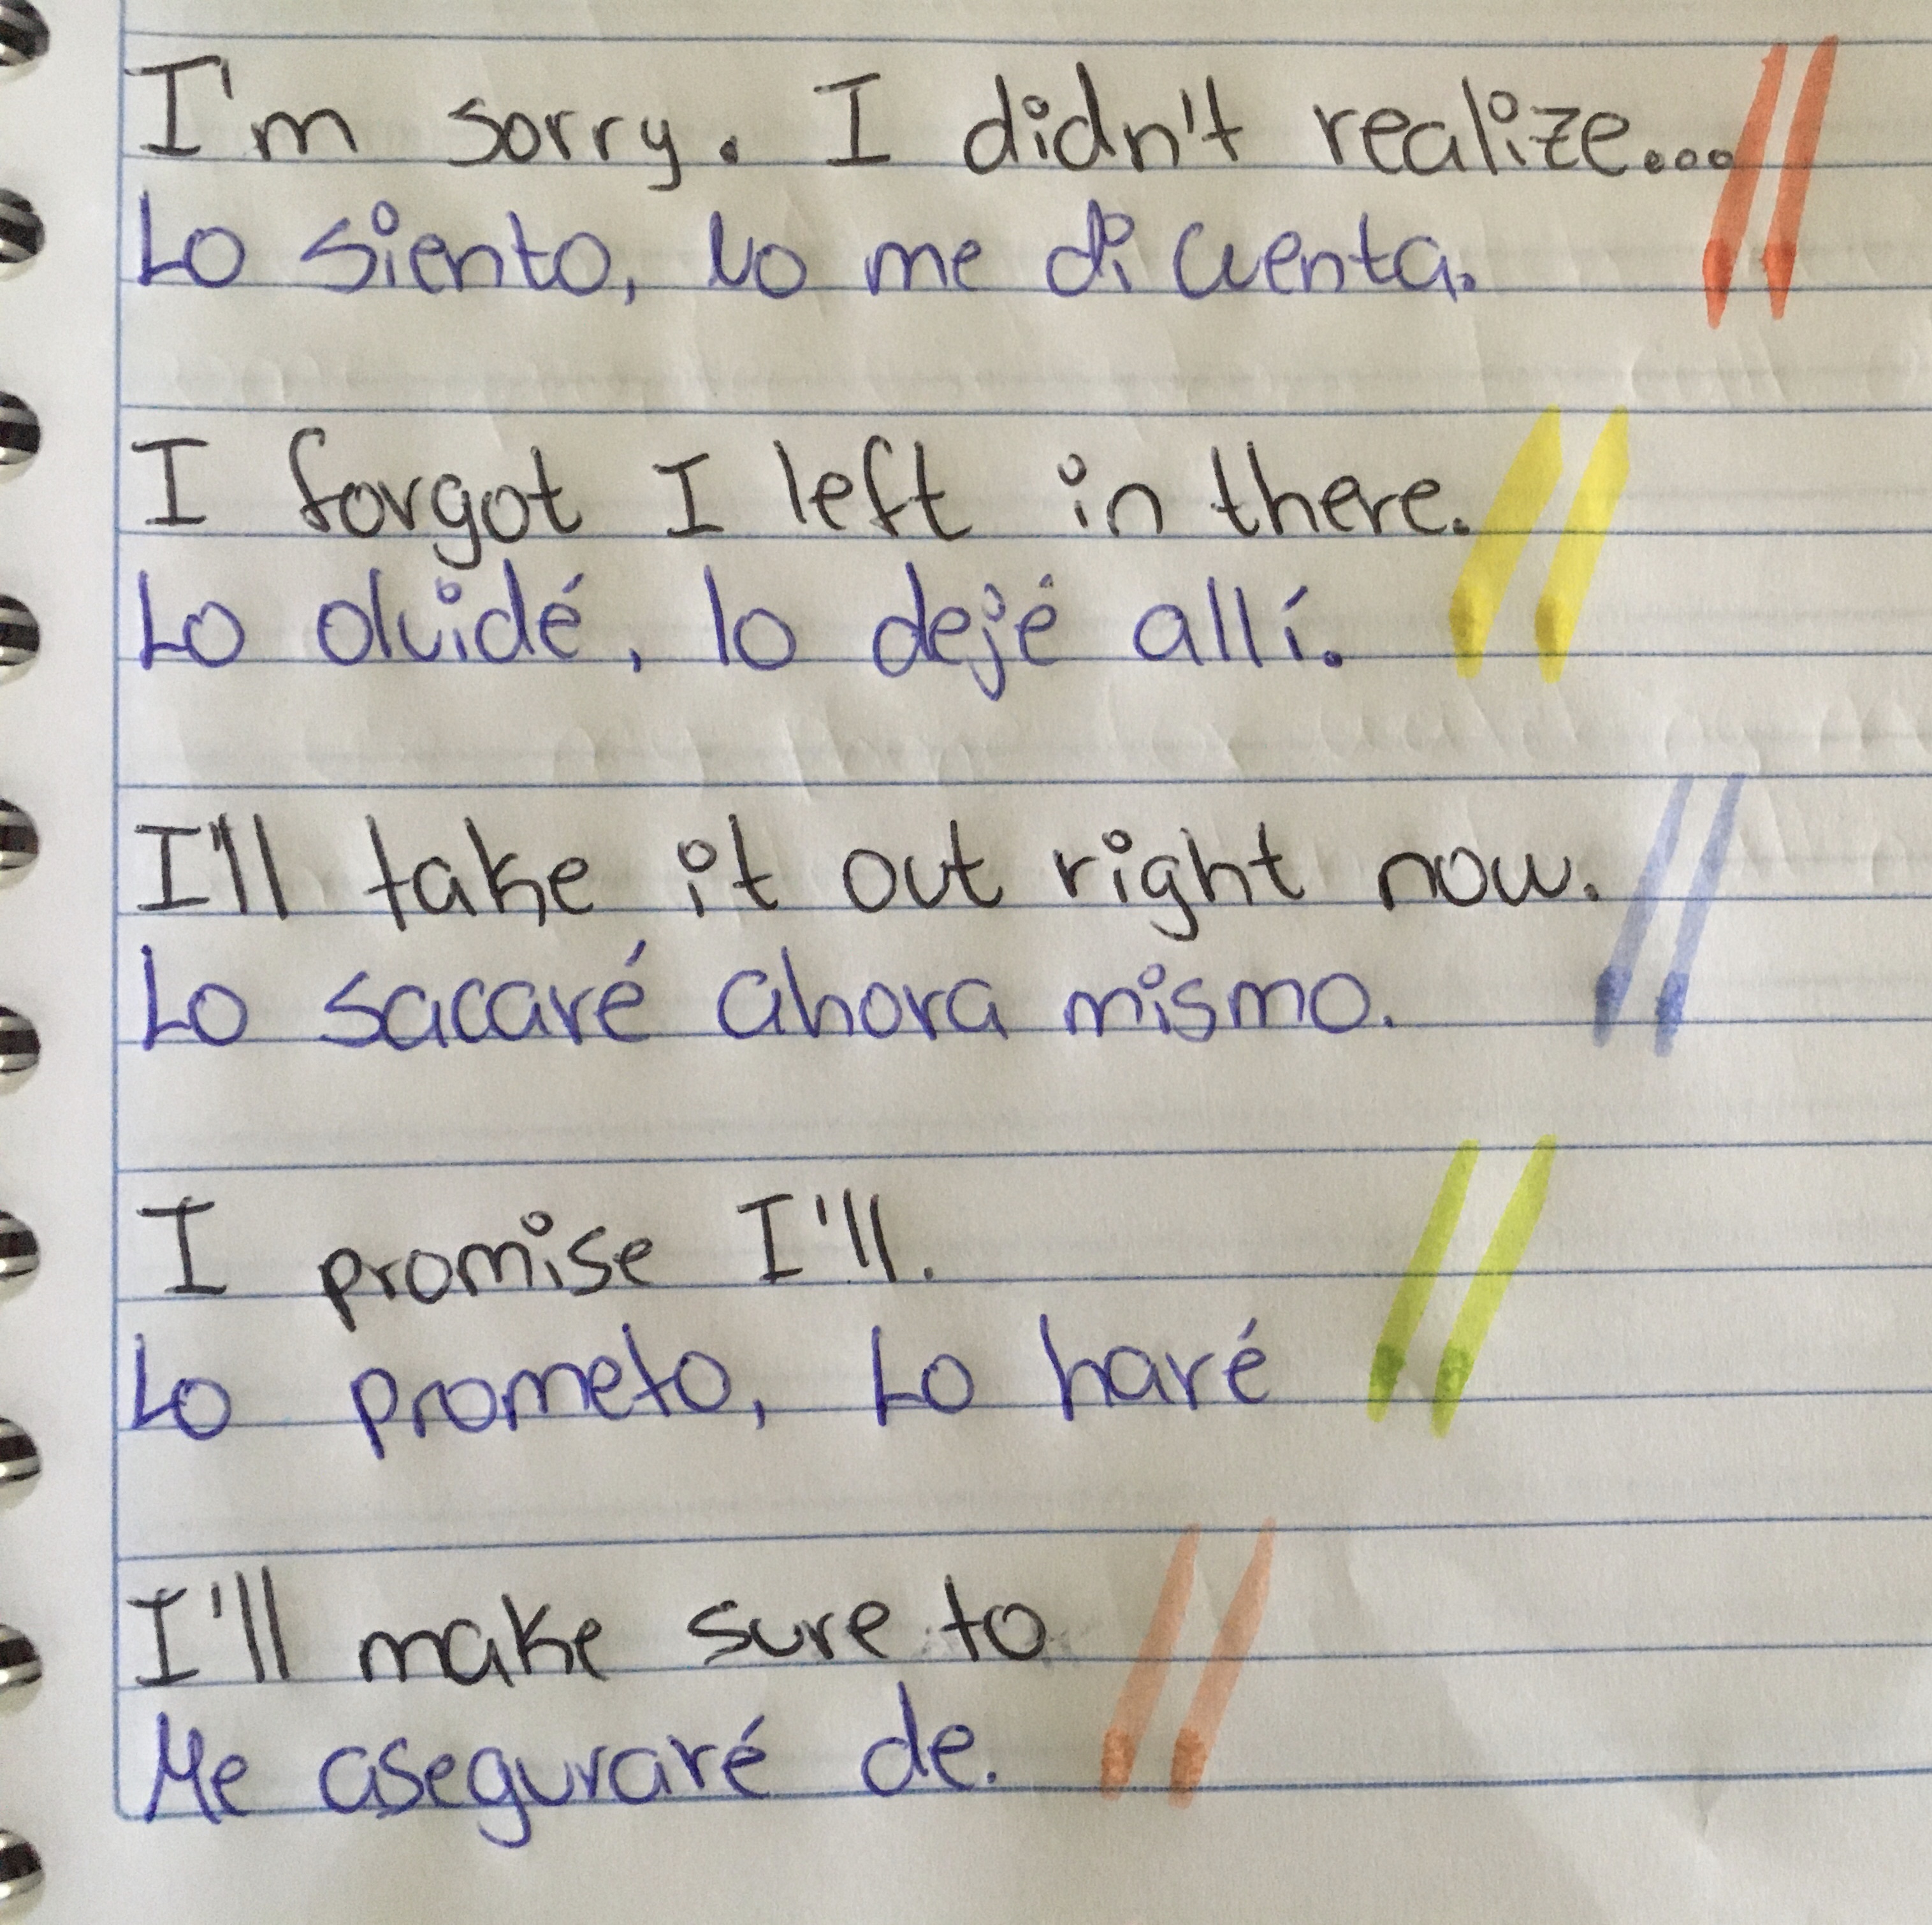 I'm sorry. I didn't realize...
Lo siento, No me di cuenta.
I forgot I left in there.
Lo olvidé, lo dejé allí.
I'll take it out right now.
Lo sacaré ahora mismo.
I promise I'll.
Lo prometo, Lo haré
I'll make sure to
Me aseguraré de.